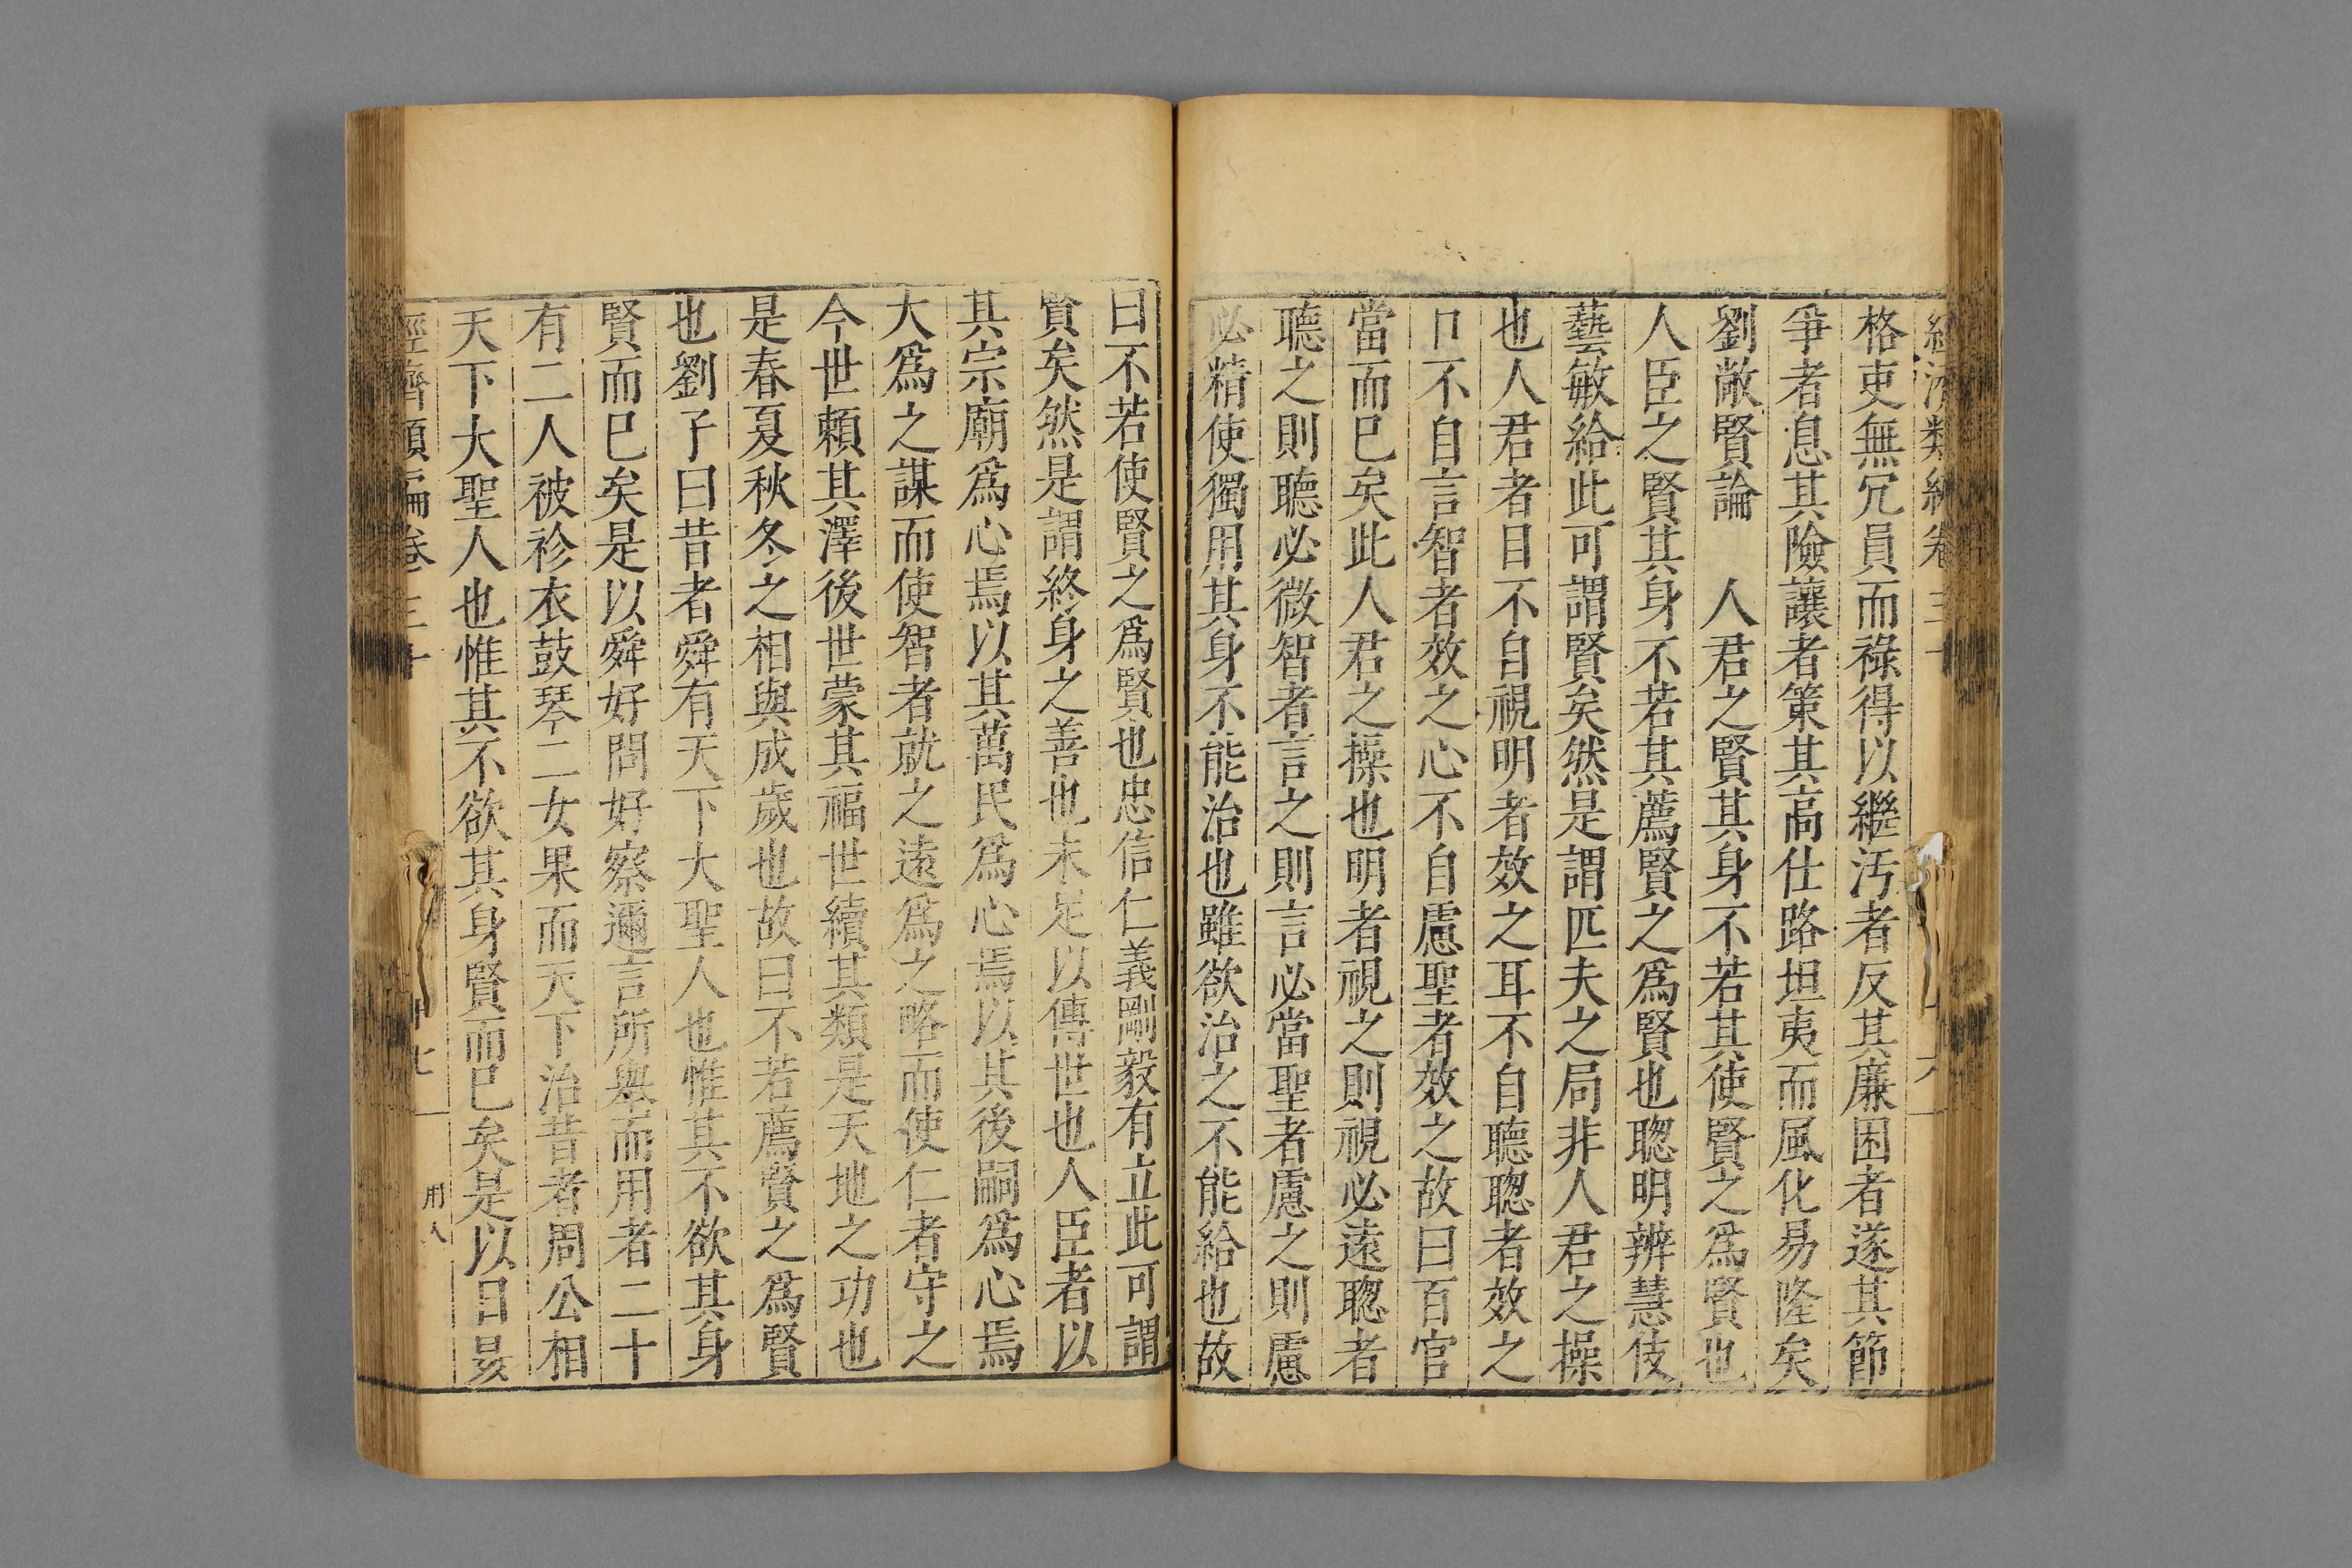 經濟類編卷三十 十六
格吏無冗員而祿得以繼汚者反其廉困者遂其節
爭者息其險讓者策其高仕路坦夷而風化易隆矣
劉敞賢論 人君之賢其身不若其使賢之爲賢也
人臣之賢其身不若其薦賢之爲賢也聦明辨慧伎
藝敏給此可謂賢矣然是謂匹夫之局非人君之操
也人君者目不自視明者效之耳不自聽聦者效之
口不自言智者效之心不自慮聖者效之故曰百官
當而已矣此人君之操也明者視之則視必遠聦者
聽之則聽必微智者言之則言必當聖者慮之則慮
必精使獨用其身不能治也雖欲治之不能給也故
曰不若使賢之爲賢也忠信仁義剛毅有立此可謂
賢矣然是謂終身之善也未足以傳世也人臣者以
其宗廟爲心焉以其萬民爲心焉以其後嗣爲心焉
大爲之謀而使智者就之遠爲之略而使仁者守之
今世頼其澤後世蒙其福世續其類是天地之功也
是春夏秋冬之相與成歲也故曰不若薦賢之爲賢
也劉子曰昔者舜有天下大聖人也惟其不欲其身
賢而已矣是以舜好問好察邇言所舉而用者二十
有二人被袗衣鼓琴二女果而天下治昔者周公相
天下大聖人也惟其不欲其身賢而已矣是以日晏
經濟類編卷三十 十七 用人